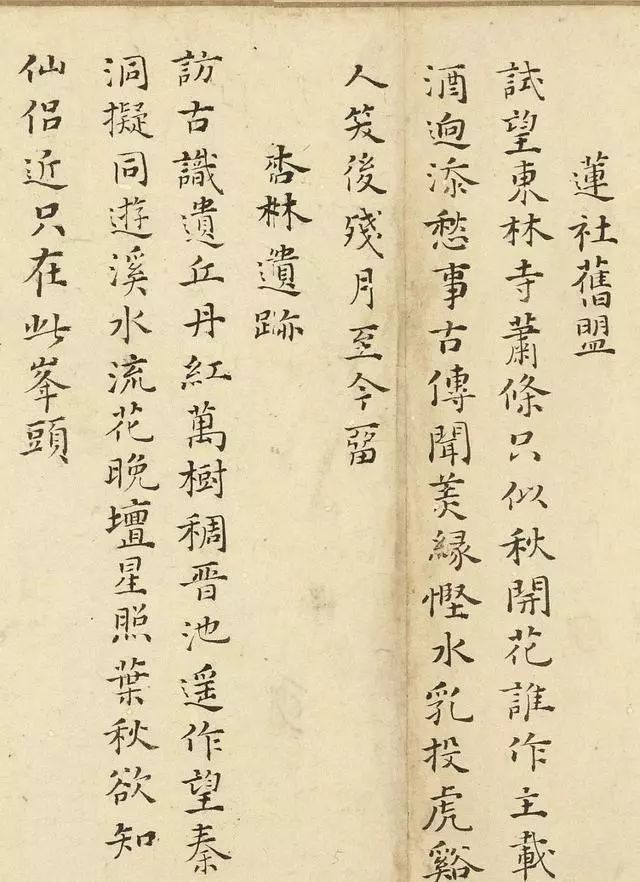 蓮社舊盟
試望東林寺蕭條只似秋開花誰作主載
酒迥添愁事古傳聞羙緣慳水乳投虎谿
人笑後殘月至今畱
杏林遺跡
訪古識遺丘丹紅萬樹稠晋池遥作望秦
洞擬同遊溪水流花晚壇星照葉秋欲知
仙侣近只在此峯頭